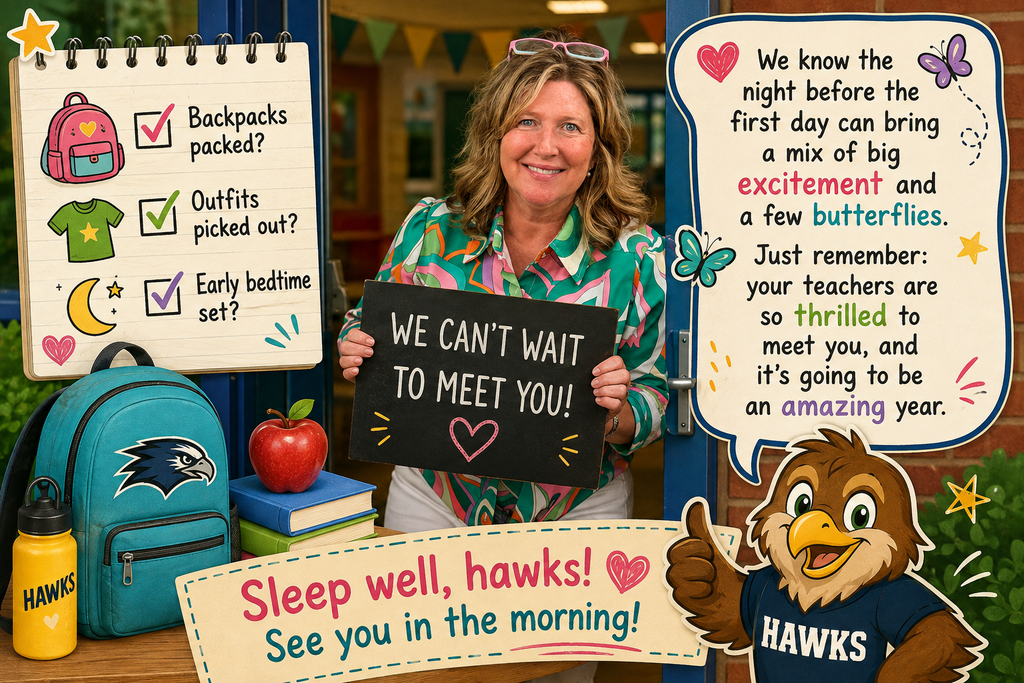 Backpacks
packed?
Outfits
picked out?
Early bedtime
set?
WE CAN'T WAIT
TO MEET YOU!
We know the
night before the
first day can bring
a mix of big
excitement and
a few butterflies.
Just remember:
your teachers are
so thrilled to
meet you, and
it's going to be
an amazing year.
HAWKS
Sleep well, hawks!
See you in the morning!
HAWKS